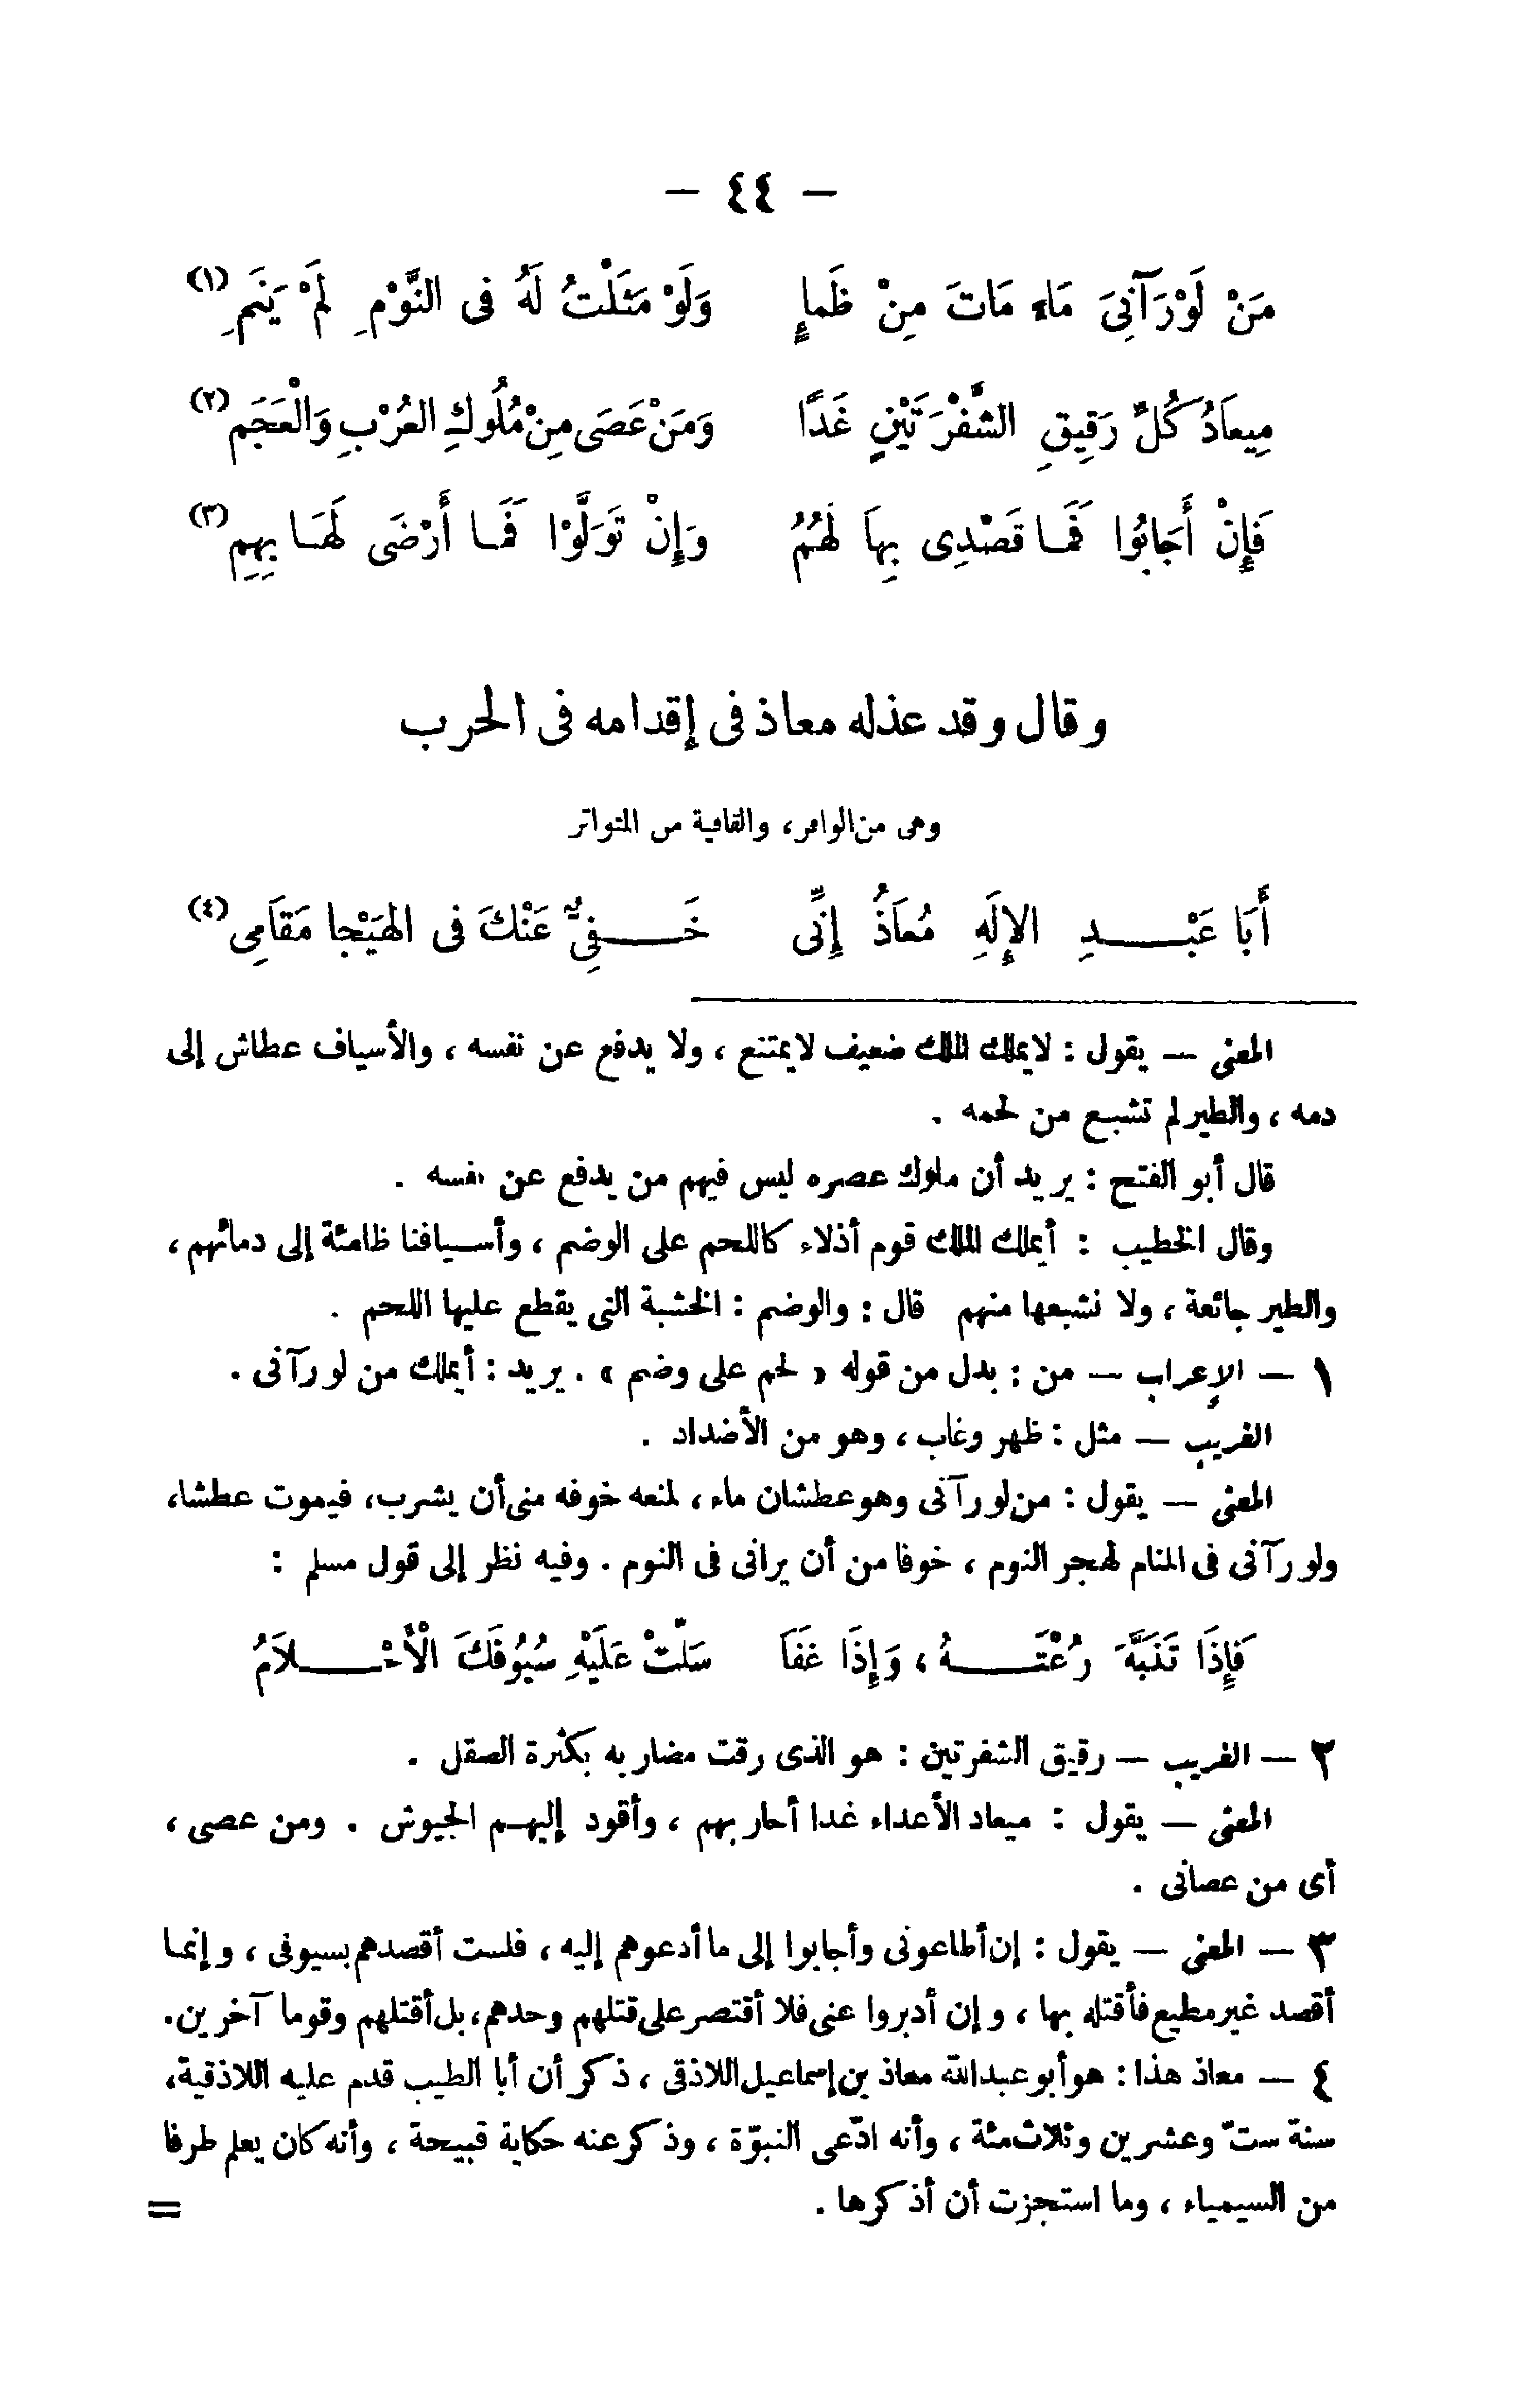 — ٤٤ —
مَنْ لَوْ رَآنِىَ مَاءَ مَاتَ مِنْ ظَمَإٍ وَلَوْ مَثَلْتُ لَهُ فى النَّوْمِ لَمْ يَنَمِ (١)
مِيعَادُ كُلِّ رَقِيقِ الشَّفْرَتَيْنِ غَدًا وَمَنْ عَصَى مِنْ مُلُوكِ العُرْبِ وَالْعَجَمِ (٢)
فَإِنْ أَجَابُوا فَمَا قَصْدِى بِهَا لَهُمُ وَإِنْ تَوَلَّوْا فَمَا أَرْضَى لَهَا بِهِمِ (٣)
وقال وقد عذله معاذ فى إقدامه فى الحرب
وهى من الوافر، والقافية من المتواتر
أَبَا عَبْدِ الإِلَهِ مُعَاذُ إِنِّى خَفِىٌّ عَنْكَ فى الهَيْجا مَقَامِى (٤)
المعنى — يقول : لا يملك الملك ضعيف لا يمتنع ، ولا يدفع عن نفسه ، والأسياف عطاش إلى
دمه ، والطير لم تشبع من لحمه .
قال أبو الفتح : يريد أن ملوك عصره ليس فيهم من يدفع عن نفسه .
وقال الخطيب : أيملك الملك قوم أذلاء كاللحم على الوضم ، وأسيافنا ظامئة إلى دمائهم ،
والطير جائعة ، ولا نشبعها منهم قال : والوضم : الخشبة التى يقطع عليها اللحم .
١ — الإعراب — من : بدل من قوله « لحم على وضم » . يريد : أيملك من لو رآنى .
الغريب — مثل : ظهر وغاب ، وهو من الأضداد .
المعنى — يقول : من لو رآنى وهو عطشان ماء ، لمنعه خوفه منى أن يشرب، فيموت عطشا،
ولو رآنى فى المنام لهجر النوم ، خوفا من أن يرانى فى النوم . وفيه نظر إلى قول مسلم :
فَإِذَا تَنَبَّهَ رُعْتَهُ ، وَإِذَا غَفَا سَلَّتْ عَلَيْهِ سُيُوفَكَ الْأَحْلاَمُ
٢ — الغريب — رقيق الشفرتين : هو الذى رقت مضاربه بكثرة الصقل .
المعنى — يقول : ميعاد الأعداء غدا أحاربهم ، وأقود إليهم الجيوش . ومن عصى ،
أى من عصانى .
٣ — المعنى — يقول : إن أطاعونى وأجابوا إلى ما أدعوهم إليه ، فلست أقصدهم بسيوفى ، وإنما
أقصد غير مطيع فأقتله بها ، وإن أدبروا عنى فلا أقتصر على قتلهم وحدهم، بل أقتلهم وقوما آخرين.
٤ — معاذ هذا : هو أبو عبد الله معاذ بن إسماعيل اللاذقى ، ذكر أن أبا الطيب قدم عليه اللاذقية،
سنة ستّ وعشرين وثلاث مئة ، وأنه ادّعى النبوّة ، وذكر عنه حكاية قبيحة ، وأنه كان يعلم طرفا
من السيمياء ، وما استجزت أن أذكرها .
=